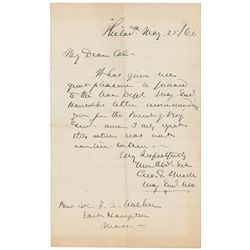 Philad. May 25/66
My Dear Col—
It has given me
great pleasure to forward
to the War Dept. Maj. Genl
Hancock's letter recommending
you for the Brevet of Brig.
Genl. and I only regret
this action was not
earlier taken—
Very Respectfully
Geo. G. Meade
Maj. Genl.
Bvt Col F. A. Walker
East Hampton
Mass—